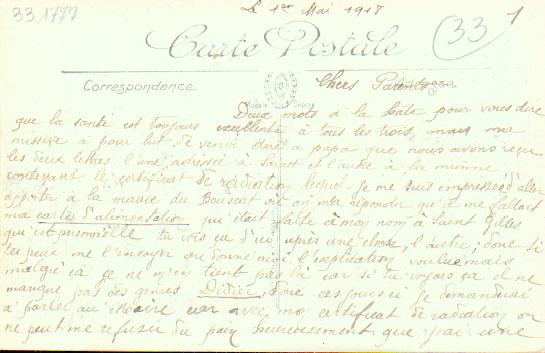 33,1777
Le 1er Mai 1918
1
33
Carte Postale
Correspondance
Adresse
Chers Parents
Deux mots à la hâte pour vous dire
que la santé est toujours excellente à tous les trois, mais ma
missive a pour but de venir dire a papa que nous avons reçu
les deux lettres l'une adressée à et l'autre à la mienne
contenant le certificat de radiation lequel je me suis empressée d'aller
apporter à la mairie du Bouscat où on m'a répondu qu'il me fallait
ma carte d'alimentation qui était faite à mon nom à Saint Gilles
qui est personnelle tu vois ça d'ici après une chose, l'autre, donc si
tu peux me l'envoyer ou donne moi l'explication voulue mais
malgré ça je ne m'en tient pas là car si tu voyais ça il ne
manque pas des Didier, donc ces jours ci je demanderai
à parler au Maire car avec mon certificat de radiation on
ne peut me refuser du pain heureusement que j'ai une